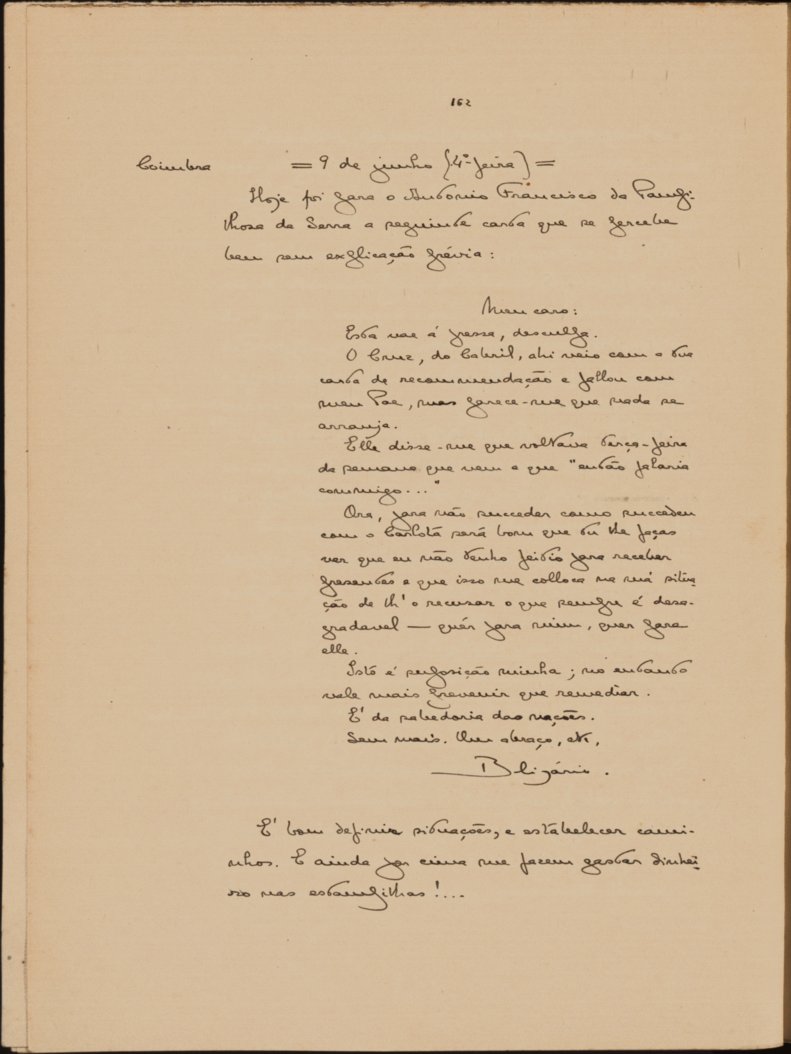 162
Coimbra = 9 de junho (4ª-feira) =
Hoje foi para o Antonio Francisco da Pampi-
lhosa da Serra a seguinte carta que se percebe
bem sem explicação prévia:
Meu caro:
Esta vae á pressa, desculpa.
O Cruz, do Cabril, ahi veio com a tua
carta de recommendação e fallou com
meu Pae, mas parece-me que nada se
arranja.
Elle disse-me que voltava terça-feira
da semana que vem e que "então falaria
commigo..."
Ora, para não succeder como succedeu
com o Carlotá será bom que tu lhe faças
ver que eu não tenho feitio para receber
presentes e que isso me colloca na má situa-
ção de lh'o recusar o que sempre é desa-
gradavel — quér para mim, quer para
elle.
Isto é suposição minha; no entanto
vale mais prevenir que remediar.
E' da sabedoria das nações.
Sem mais. Um abraço, etc,
Blizário.
E' bom definir situações, e estabelecer cami-
nhos. E ainda por cima me fazem gastar dinhei-
ro nas estampilhas!...